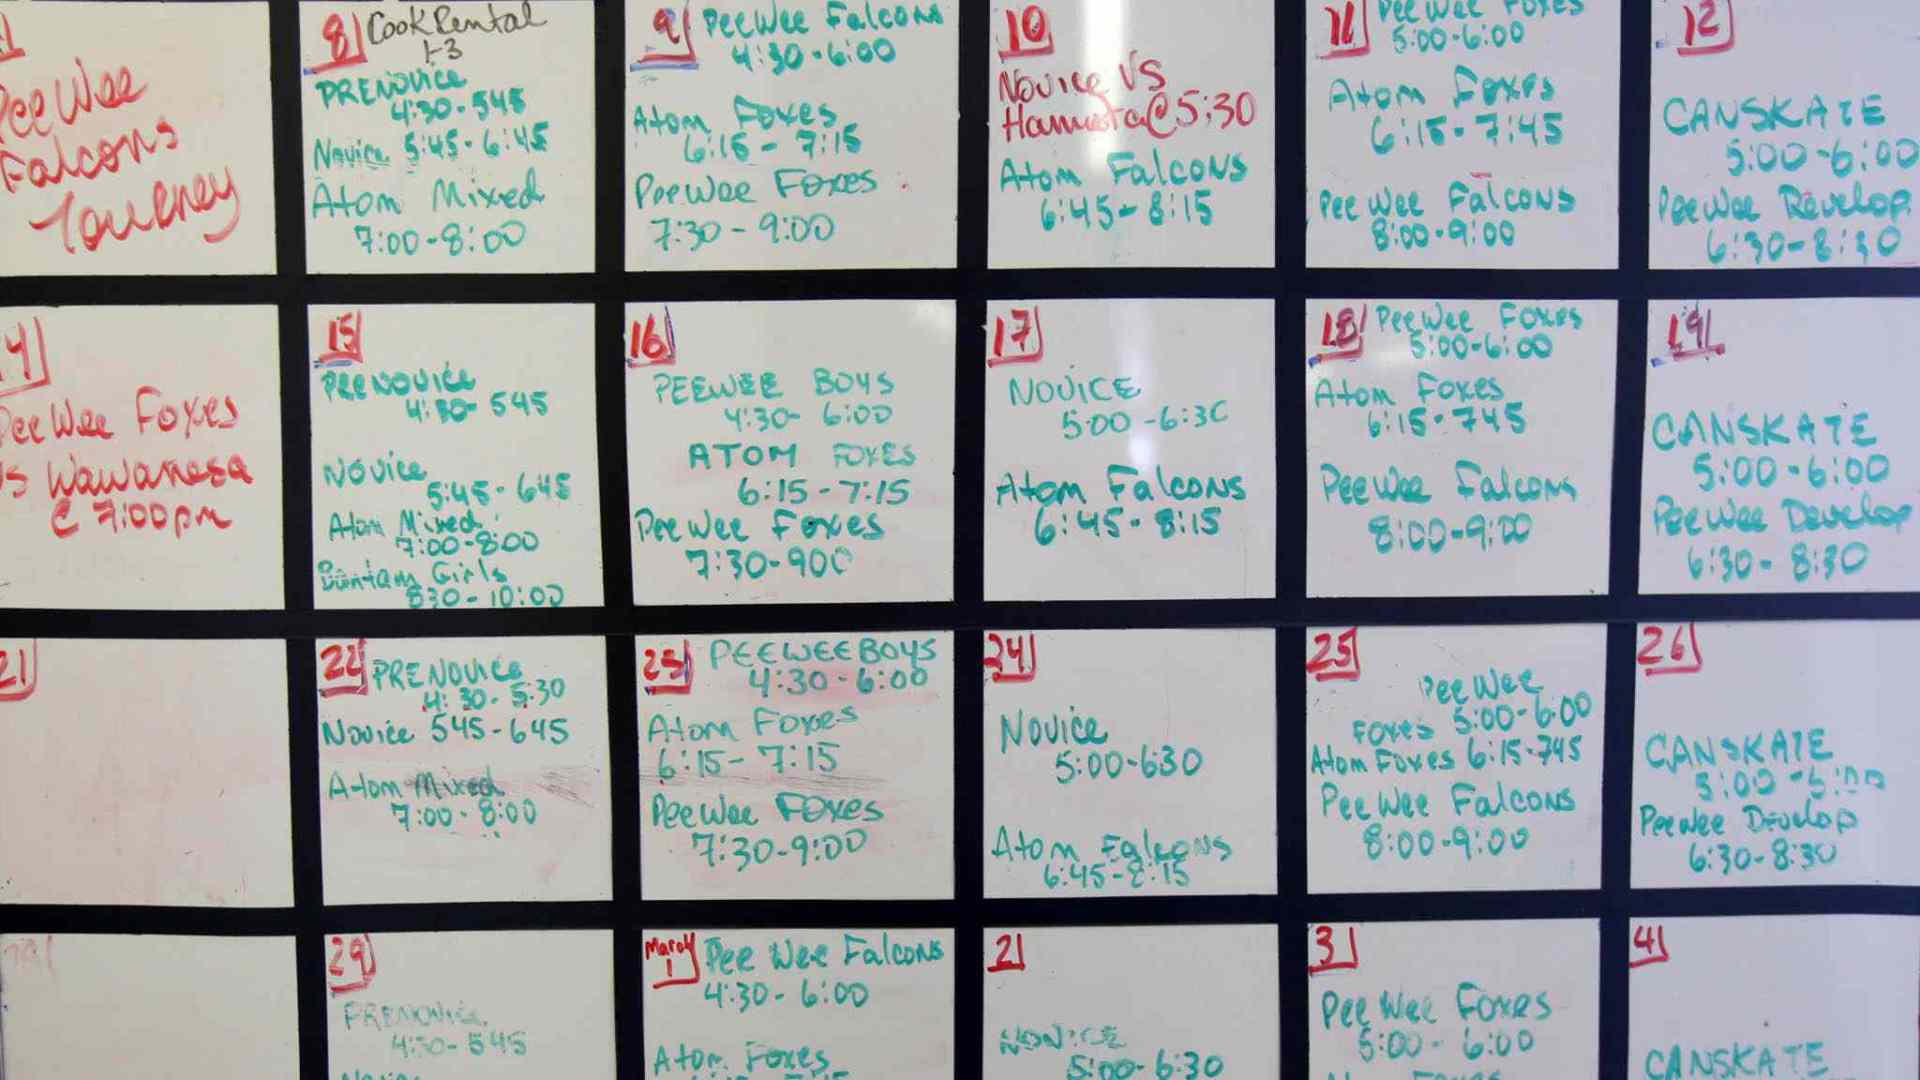 PeeWee
Falcons
Tourney
8
Cook Rental
1-3
PRENOVICE
4:30-545
Novice 5:45-6:45
Atom Mixed
7:00-8:00
9
PeeWee Falcons
4:30-6:00
Atom Foxes
6:15-7:15
PeeWee Foxes
7:30-9:00
10
Novice VS
@5:30
Atom Falcons
6:45-8:15
11
PeeWee Foxes
5:00-6:00
Atom Foxes
6:15-7:45
Pee Wee Falcons
8:00-9:00
12
CANSKATE
5:00-6:00
PeeWee Develop
6:30-8:30
PeeWee Foxes
VS Wawanesa
@ 7:00pm
15
PRENOVICE
4:30-545
NOVICE
5:45-645
Atom Mixed
7:00-8:00
Bantam Girls
830-10:00
16
PEEWEE BOYS
4:30-6:00
ATOM FOXES
6:15-7:15
PeeWee Foxes
7:30-900
17
NOVICE
5:00-6:30
Atom Falcons
6:45-8:15
18
PeeWee Foxes
5:00-6:00
Atom Foxes
6:15-745
PeeWee Falcons
8:00-9:00
19
CANSKATE
5:00-6:00
PeeWee Develop
6:30-8:30
21
22
PRENOVICE
4:30-5:30
Novice 545-645
Atom Mixed
7:00-8:00
23
PEEWEE BOYS
4:30-6:00
Atom Foxes
6:15-7:15
PeeWee Foxes
7:30-9:00
24
Novice
5:00-630
Atom Falcons
6:45-8:15
25
PeeWee
Foxes 5:00-6:00
Atom Foxes 6:15-745
PeeWee Falcons
8:00-9:00
26
CANSKATE
5:00-6:00
PeeWee Develop
6:30-8:30
29
PRENOVICE
4:30-545
March
1
Pee Wee Falcons
4:30-6:00
Atom Foxes
2
NOVICE
5:00-6:30
3
Pee Wee Foxes
5:00-6:00
4
CANSKATE